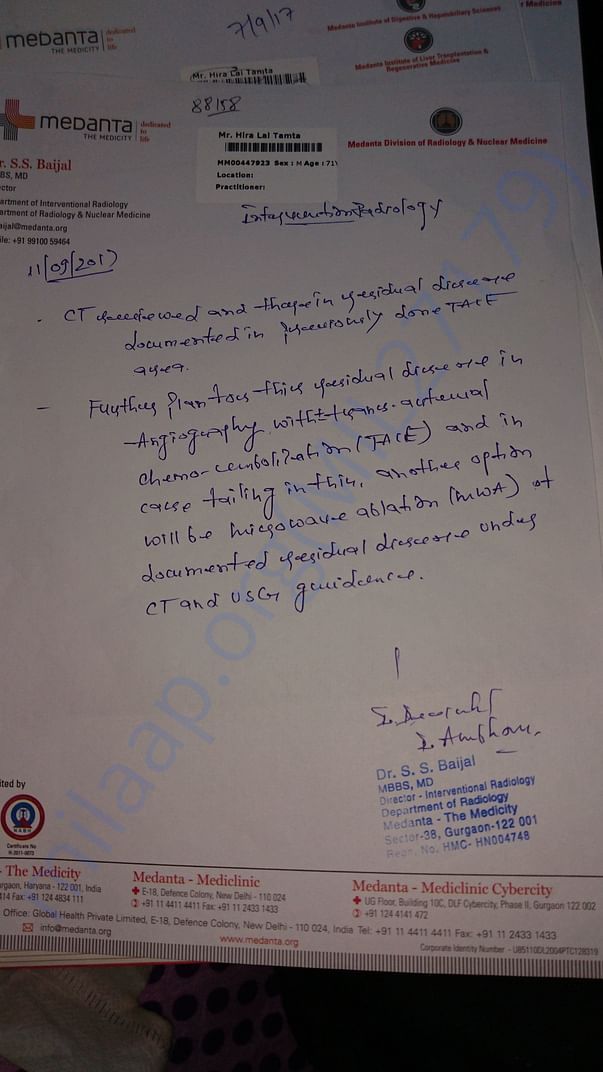 7/9/17
medanta
dedicated
to
life
THE MEDICITY
Medanta Institute of Digestive & Hepatobiliary Sciences
r Medicine
Medanta Institute of Liver Transplantation &
Regenerative Medicine
Mr. Hira Lal Tamta
88/58
medanta
dedicated
to
life
THE MEDICITY
Mr. Hira Lal Tamta
MM00447923 Sex : M Age : 71
Location:
Practitioner:
Medanta Division of Radiology & Nuclear Medicine
r. S.S. Baijal
BS, MD
ector
artment of Interventional Radiology
artment of Radiology & Nuclear Medicine
aijal@medanta.org
ile: +91 99100 59464
Intervention Radiology
11/09/2017
- CT reviewed and there in residual disease
documented in previously done TACE
area.
- Further plan to this residual disease in
Angiography with trans-arterial
chemo-embolization (TACE) and in
case failing in this, another option
will be microwave ablation (MWA) of
documented residual disease under
CT and USG guidance.
Dr. S. S. Baijal
MBBS, MD
Director - Interventional Radiology
Department of Radiology
Medanta - The Medicity
Sector-38, Gurgaon-122 001
Regn. No. HMC- HN004748
ited by
NABH
Certificate No
H-2011-0073
- The Medicity
rgaon, Haryana - 122 001, India
414 Fax: +91 124 4834 111
Medanta - Mediclinic
E-18, Defence Colony, New Delhi - 110 024
+91 11 4411 4411 Fax: +91 11 2433 1433
Medanta - Mediclinic Cybercity
UG Floor, Building 10C, DLF Cybercity, Phase II, Gurgaon 122 002
+91 124 4141 472
Office: Global Health Private Limited, E-18, Defence Colony, New Delhi - 110 024, India Tel: +91 11 4411 4411 Fax: +91 11 2433 1433
info@medanta.org
www.medanta.org
Corporate Identity Number - U85110DL2004PTC128319